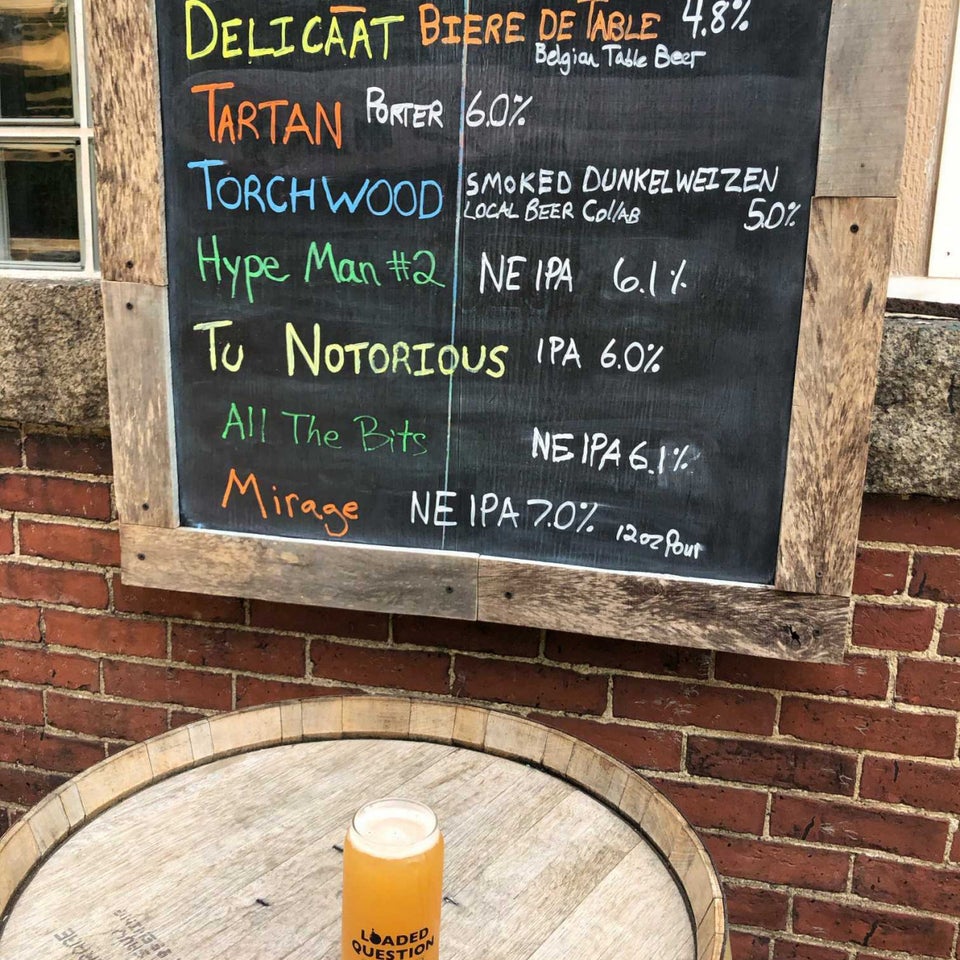 DELICĀĀT BIERE DE TABLE 4.8%
Belgian Table Beer
TARTAN PORTER 6.0%
TORCHWOOD SMOKED DUNKELWEIZEN
LOCAL BEER COLLAB 5.0%
Hype Man #2 NE IPA 6.1%
TU NOTORIOUS IPA 6.0%
All The Bits NE IPA 6.1%
Mirage NE IPA 7.0% 12oz Pour
LOADED
QUESTION